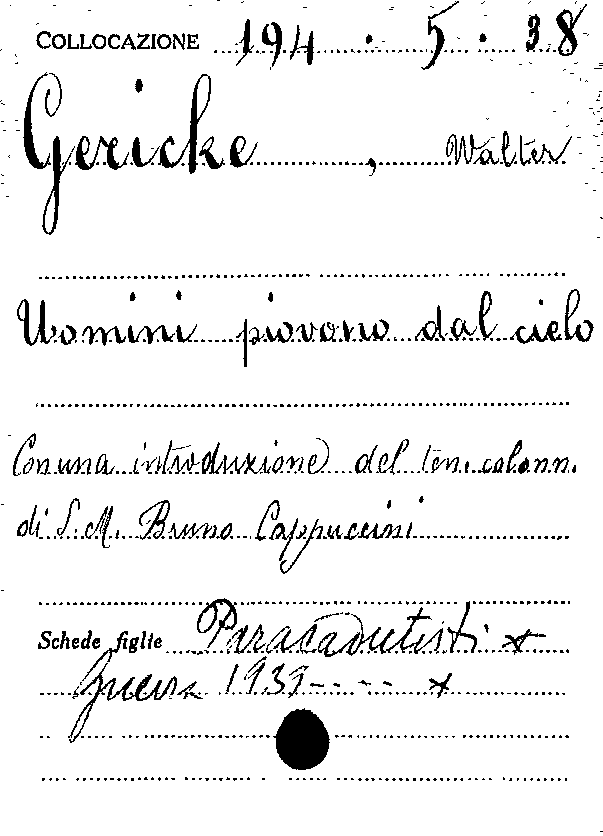 COLLOCAZIONE 194 . 5 . 38
Gericke , Walter
Uomini piovono dal cielo
Con una introduzione del ten. colonn.
di S. M. Bruno Cappuccini
Schede figlie Paracadutisti *
Guerra 1939---- *